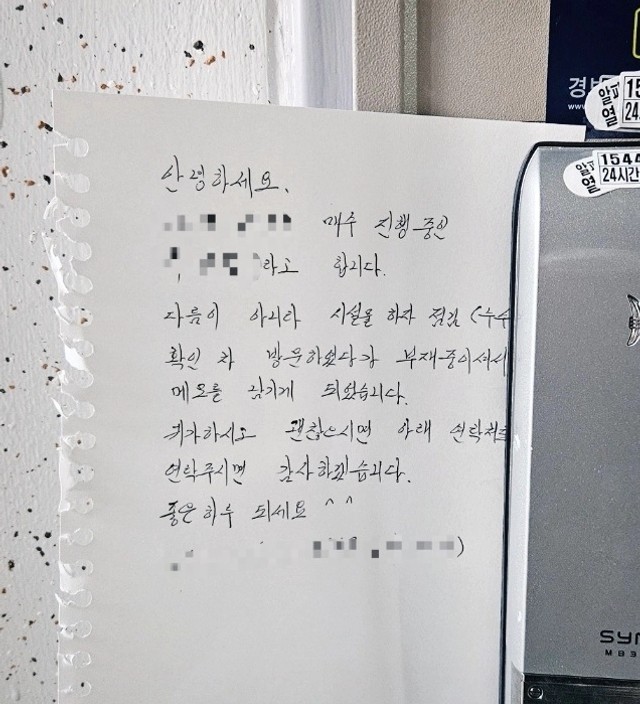 안녕하세요.
매수 진행중인
라고 합니다.
다름이 아니라 시설물 하자 점검 (누수
확인 차 방문하였다가 부재중이셔서
메모를 남기게 되었습니다.
귀가하시고 괜찮으시면 아래 연락처로
연락주시면 감사하겠습니다.
좋은하루 되세요 ^ ^
)
경비
www.
15
24
1544
24시간
SYN
MB3